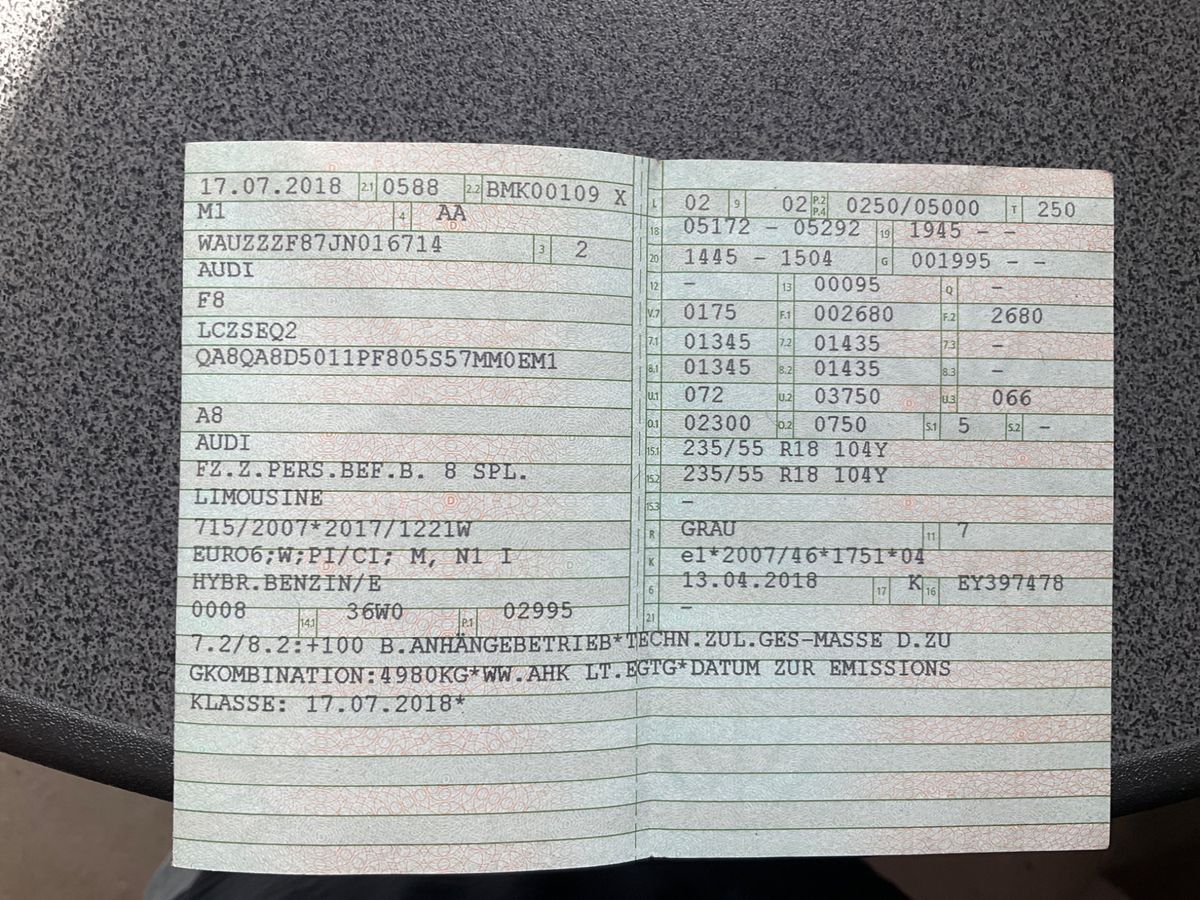 17.07.2018 2.1 0588 2.2 BMK00109 X
M1 4 AA
WAUZZZF87JN016714 3 2
AUDI
F8
LCZSEQ2
QA8QA8D5011PF805S57MM0EM1
A8
AUDI
FZ.Z.PERS.BEF.B. 8 SPL.
LIMOUSINE
715/2007*2017/1221W
EURO6;W;PI/CI; M, N1 I
HYBR.BENZIN/E
0008 14.1 36W0 P.1 02995
L 02 9 02 P.2 P.4 0250/05000 T 250
18 05172 - 05292 19 1945 - -
20 1445 - 1504 G 001995 - -
12 - 13 00095 Q -
V.7 0175 F.1 002680 F.2 2680
7.1 01345 7.2 01435 7.3 -
8.1 01345 8.2 01435 8.3 -
U.1 072 U.2 03750 U.3 066
O.1 02300 O.2 0750 S.1 5 S.2 -
15.1 235/55 R18 104Y
15.2 235/55 R18 104Y
15.3 -
R GRAU 11 7
K e1*2007/46*1751*04
6 13.04.2018 17 K 16 EY397478
21 -
7.2/8.2:+100 B.ANHÄNGEBETRIEB*TECHN.ZUL.GES-MASSE D.ZU
GKOMBINATION:4980KG*WW.AHK LT.EGTG*DATUM ZUR EMISSIONS
KLASSE: 17.07.2018*